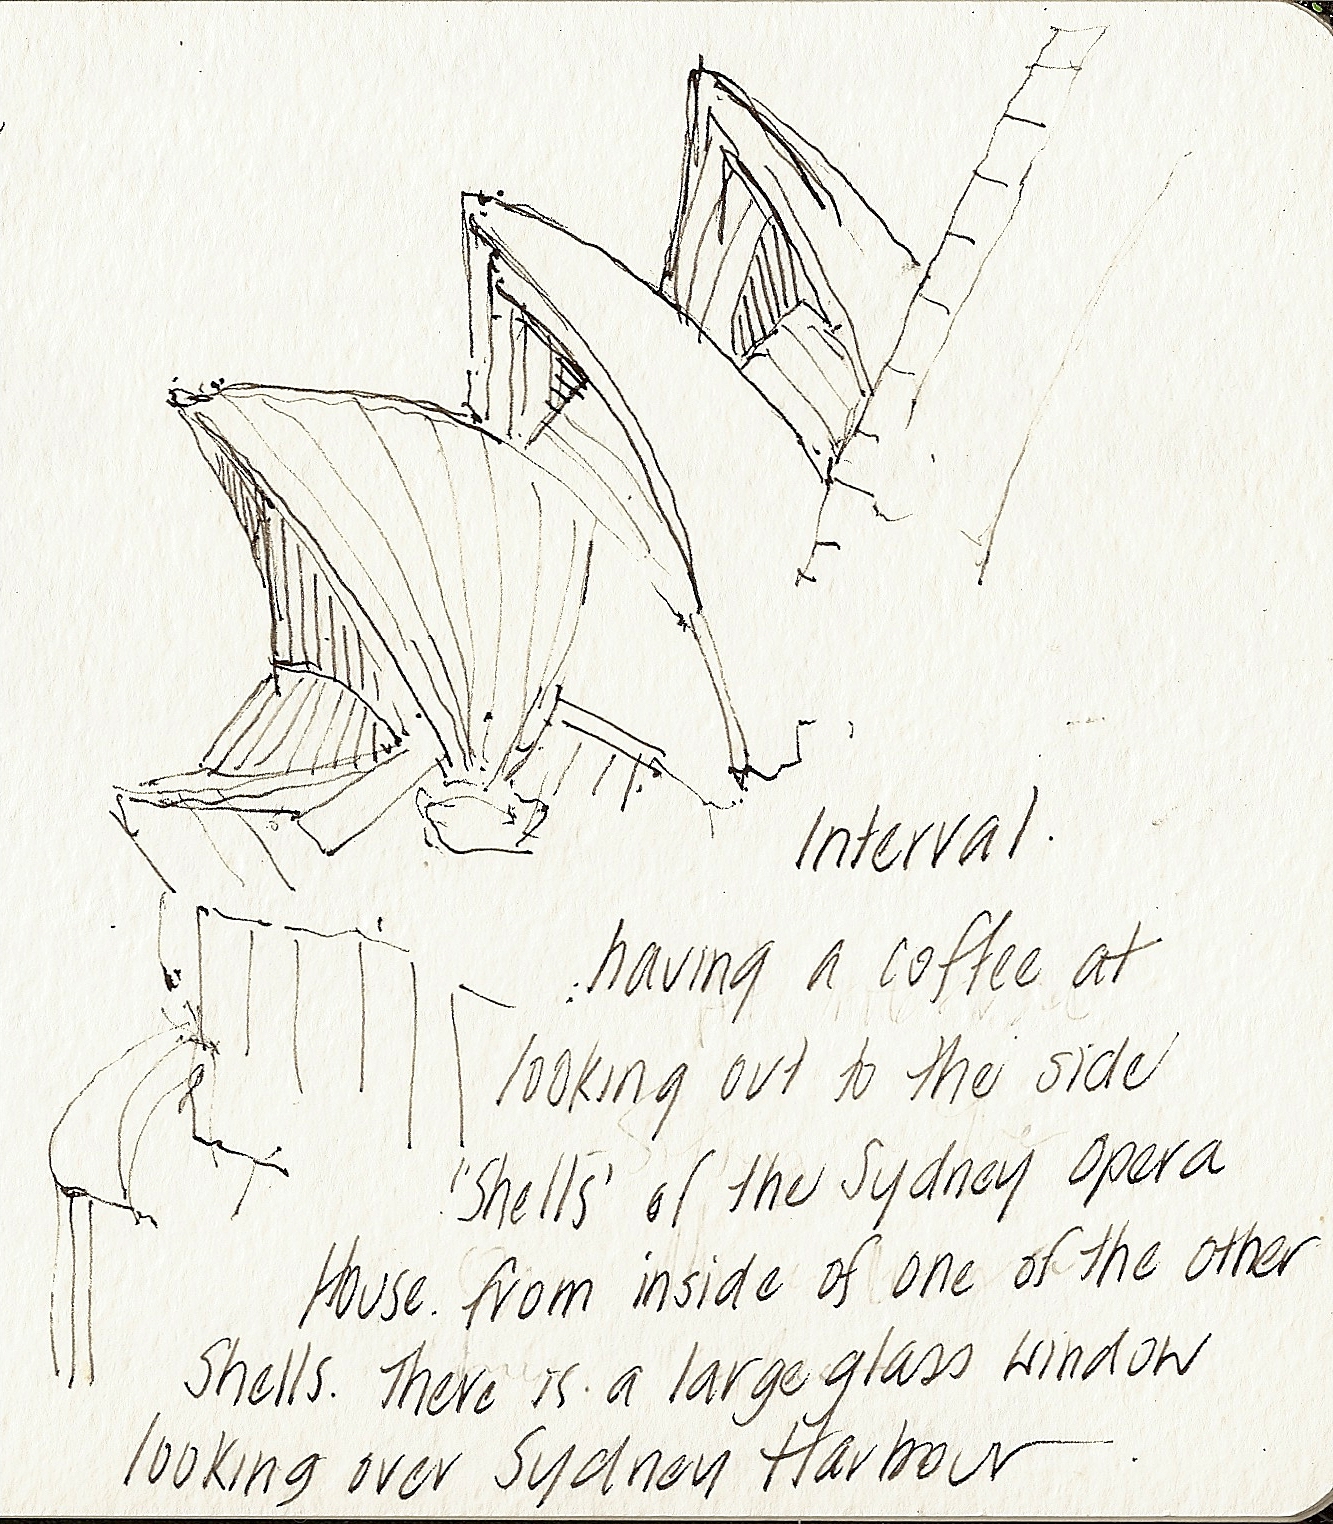 Interval.
: having a coffee at
looking out to the side
'Shells' of the Sydney Opera
House. from inside of one of the other
Shells. There is a large glass window
looking over Sydney Harbour